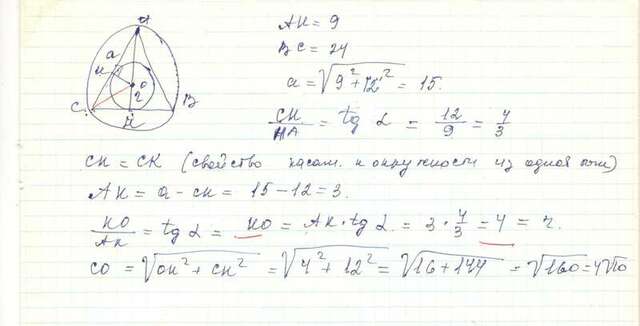 A
a
K
O
r
C
H
B
AH = 9
BC = 24
a = √(9² + 12²) = 15.
CH/HA = tg α = 12/9 = 4/3
CH = CK (свойство касат. к окружности из одной точки)
AK = a - CH = 15 - 12 = 3.
KO/AK = tg α = KO = AK · tg α = 3 · 4/3 = 4 = r.
CO = √(OH² + CH²) = √(4² + 12²) = √(16 + 144) = √160 = 4√10